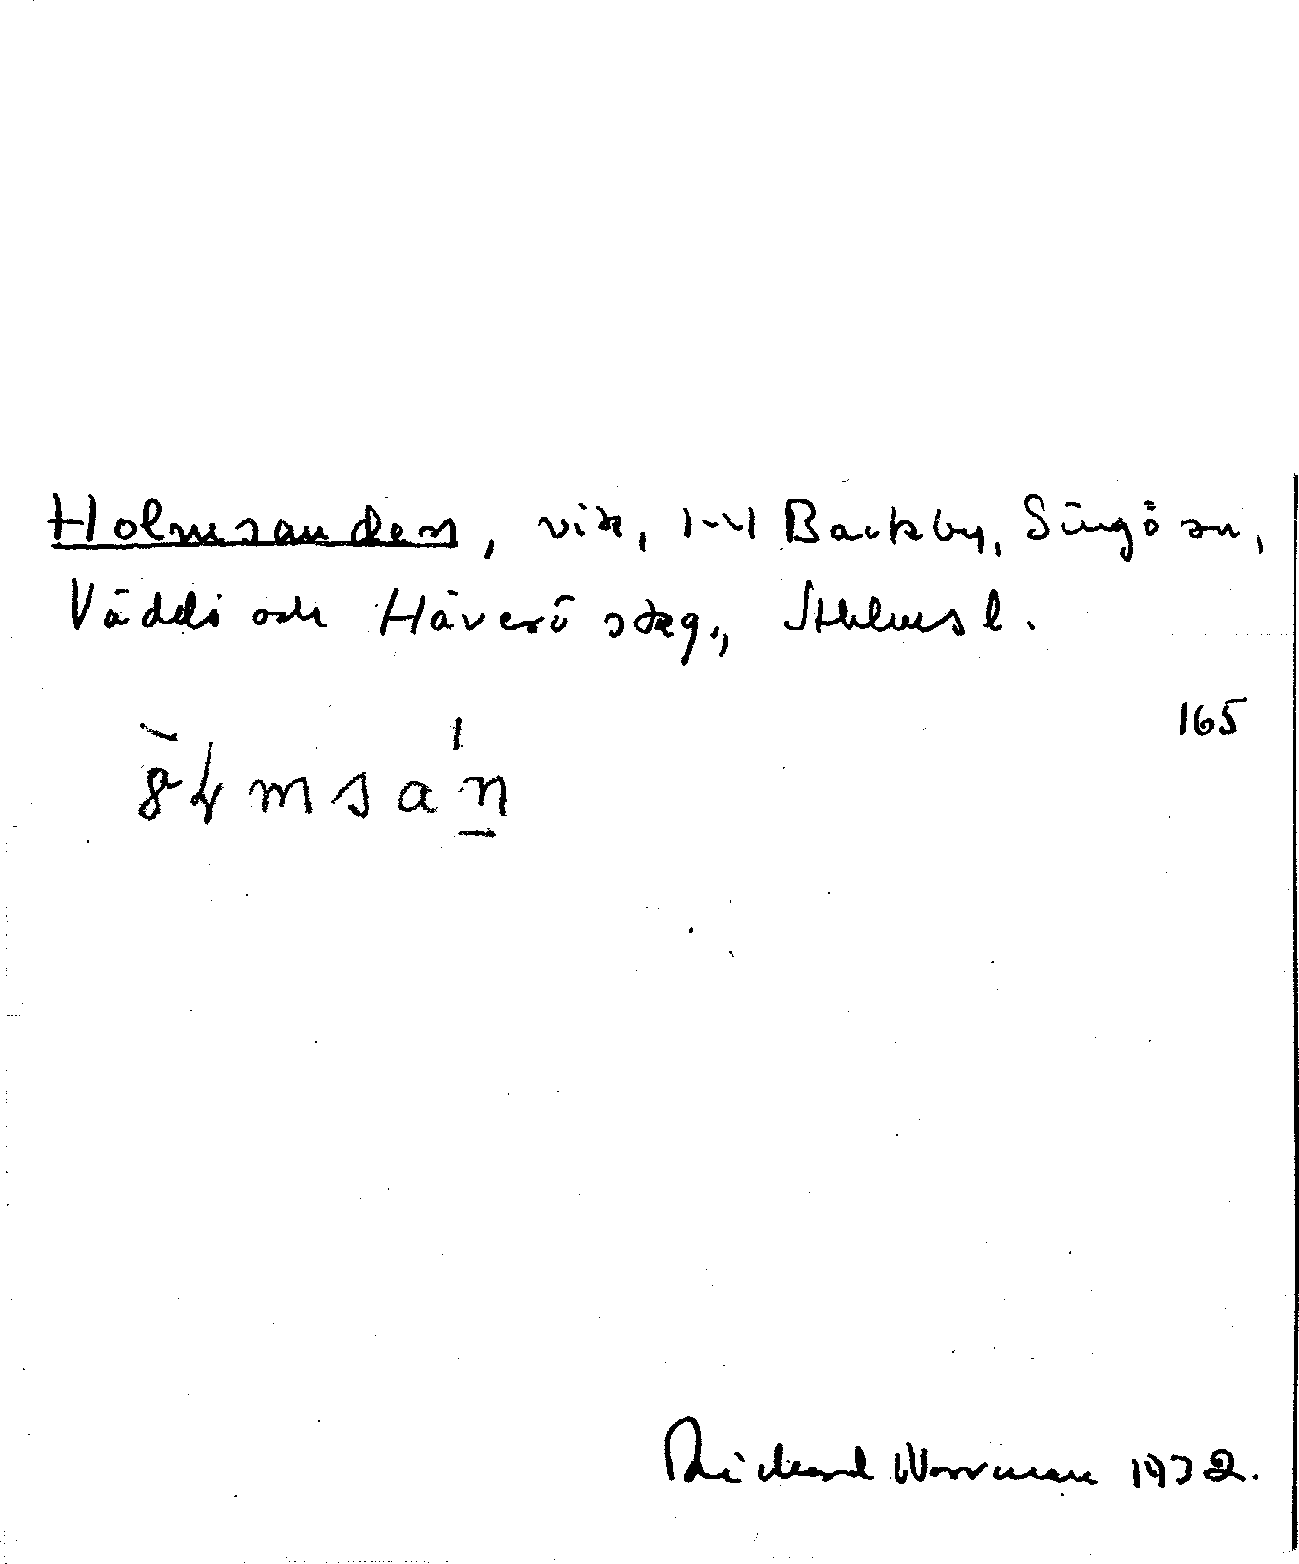 Holmsanden, vik, Backby, Singö sn,
Väddö och Häverö skg., Sthlmsl.
165
Rickard Norrman 1932.